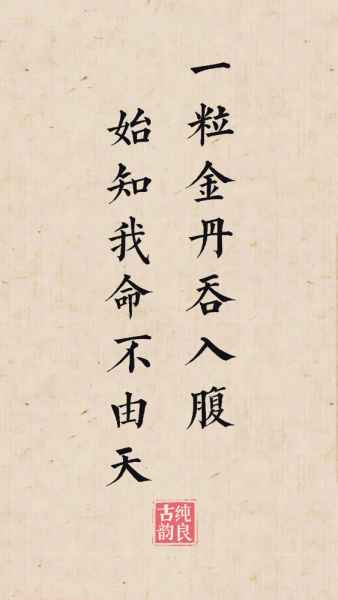 一粒金丹吞入腹
始知我命不由天
纯良
古韵